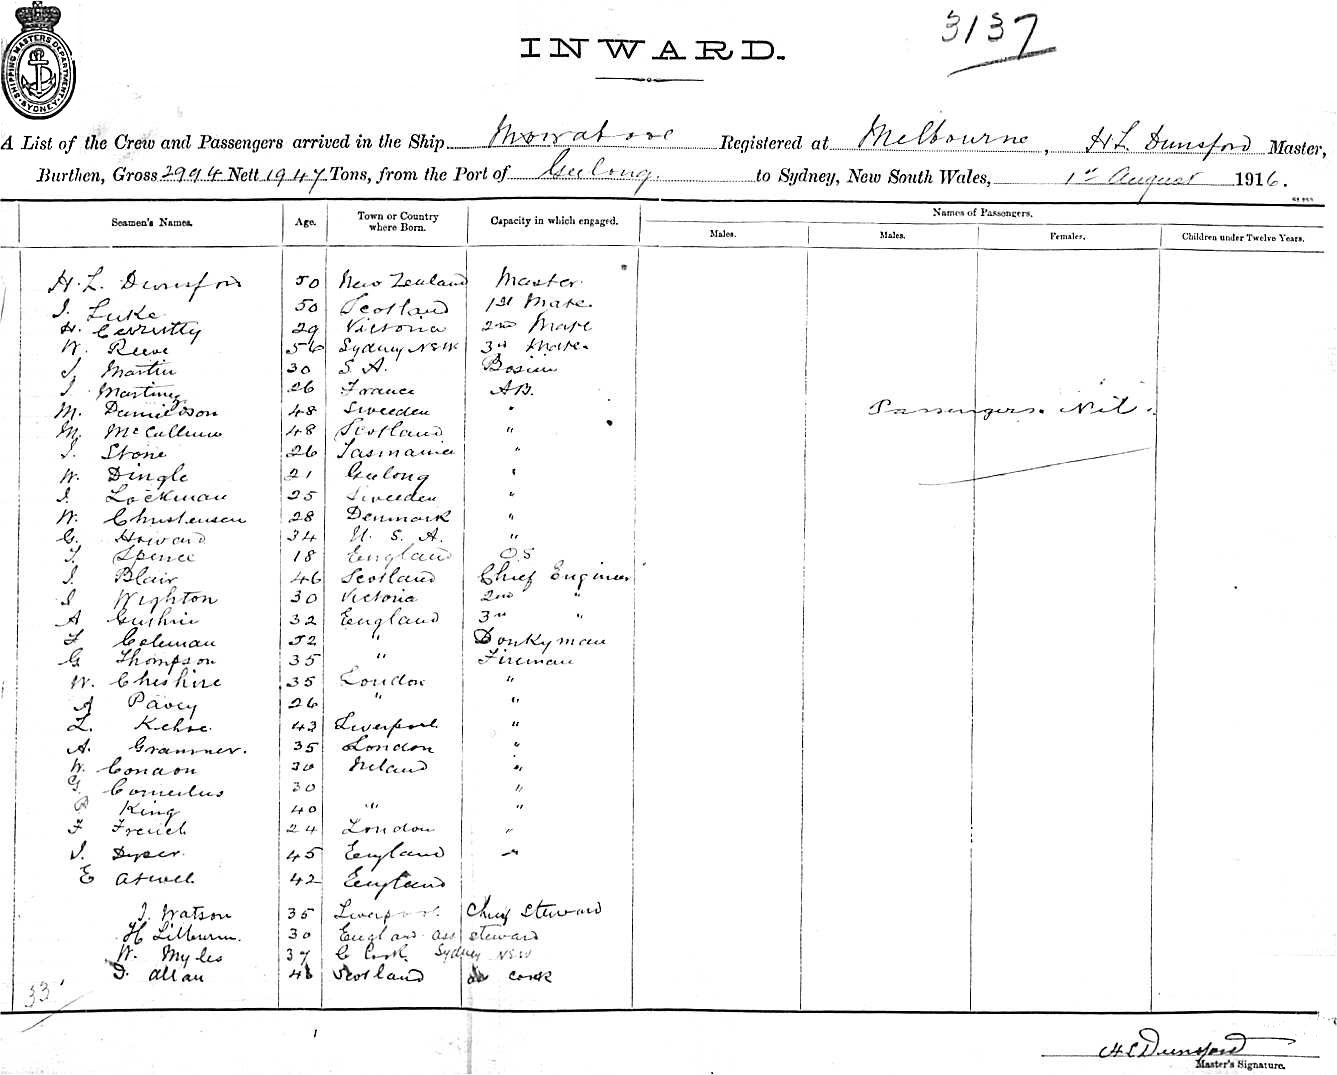 3137
SHIPPING MASTERS DEPARTMENT. SYDNEY
INWARD.
A List of the Crew and Passengers arrived in the Ship Registered at Melbourne, H L Dunsford Master,
Burthen, Gross 2994 Nett 1947 Tons, from the Port of Geelong. to Sydney, New South Wales, 1st August 1916.
Seamen's Names. Age. Town or Country where Born. Capacity in which engaged. Names of Passengers.
Males. Males. Females. Children under Twelve Years.
H. L. Dunsford 50 New Zealand Master
J. Luke 50 Scotland 1st Mate.
H. 29 Victoria 2nd Mate
W. Reeve 56 Sydney NSW 3rd Mate.
J. Martin 30 S. A.
J. Martinez 26 France AB.
M. Danieldson 48 Sweeden "
Passengers. Nil.
M. McCullum 48 Scotland "
J. Stone 26 Tasmania "
W. Dingle 21 Geelong "
J. Lockman 25 Sweeden "
W. Christensen 28 Denmark "
C. Howard 34 U. S. A. "
T. Spence 18 England OS
J. Blair 46 Scotland Chief Engineer
J Wighton 30 Victoria 2nd "
A Guthrie 32 England 3rd "
F Coleman 52 " Donkyman
G Thompson 35 " Fireman
W. Cheshire 35 London "
A Pavey 26 " "
L. Kehoe. 43 Liverpool "
A. Grammer. 35 London "
W. Condon 30 Ireland "
G. Cornelius 30 "
P King 40 " "
F French 24 London "
J. Dyser. 45 England "
E Atwell 42 England
J. Watson 35 Liverpool Chief Steward
H Lilburn. 30 England Ass Steward
W. Myles 37 C Cook Sydney NSW
J. Allan Scotland Cook
33
H L Dunsford
Master's Signature.